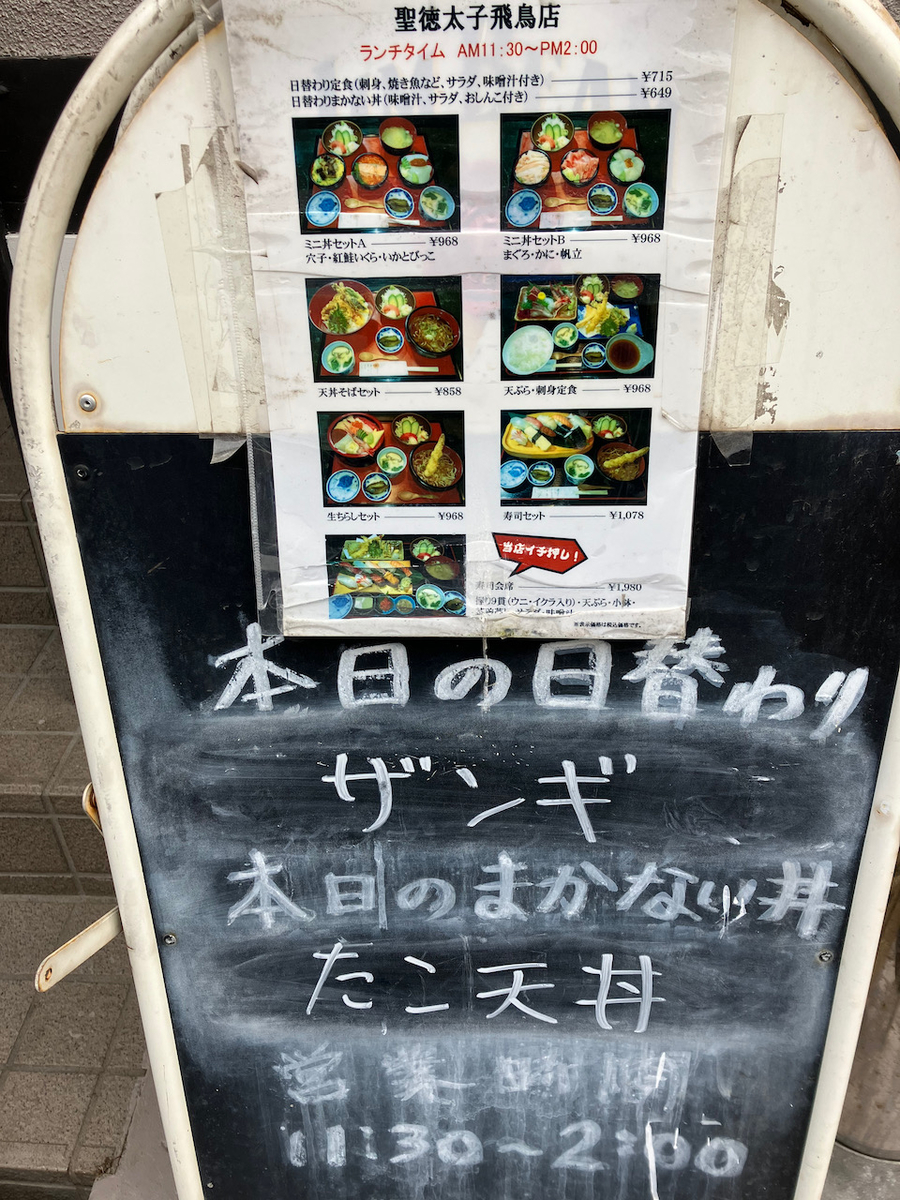 聖徳太子飛鳥店
ランチタイム AM11:30〜PM2:00
日替わり定食(刺身、焼き魚など、サラダ、味噌汁付き) ¥715
日替わりまかない丼(味噌汁、サラダ、おしんこ付き) ¥649
ミニ丼セットA ¥968
穴子・紅鮭いくら・いかとびっこ
ミニ丼セットB ¥968
まぐろ・かに・帆立
天丼そばセット ¥858
天ぷら・刺身定食 ¥968
生ちらしセット ¥968
寿司セット ¥1,078
当店イチ押し!
寿司会席 ¥1,980
握り9貫(ウニ・イクラ入り)・天ぷら・小鉢・
サラダ・味噌汁
※表示価格は税込価格です。
本日の日替わり
ザンギ
本日のまかない丼
たこ天丼
営業時間
11:30〜2:00